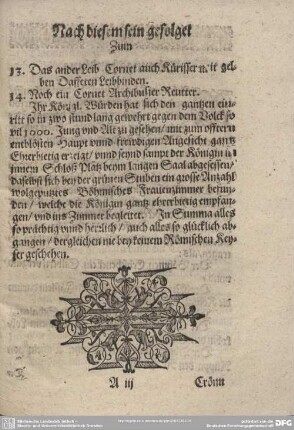 Nach diesem sein gefolget
Zum
13. Das ander Leib Cornet auch Kürisser mit gel-
ben Daffeten Leibbinden.
14. Noch ein Cornet Archibusier Reutter.
Ihr Königl. Würden hat sich den gantzen ein-
ritt so in zwo stund lang gewehrt gegen dem Volck so
vil 1000. Jung vnd Alt zu gesehen/ mit zum öfftern
entblösten Haupt vnnd frewdigen Angesicht gantz
Ehrerbietig erzeigt/ vnnd seynd sampt der Königin in
jnnern Schloß Platz beym langen Saal abgesessen/
daselbst sich bey der grünen Stuben ein grosse Anzahl
wolgeputztes Böhmisches Frawenzimmer befun-
den/ welche die Königin gantz ehrerbietig empfan-
gen/ vnd ins Zimmer begleitet. In Summa alles
so prächtig vnnd herrlich/ auch alles so glücklich ab-
gangen/ dergleichen nie bey keinem Römischen Key-
ser geschehen.
A iij
Crönu
DFG